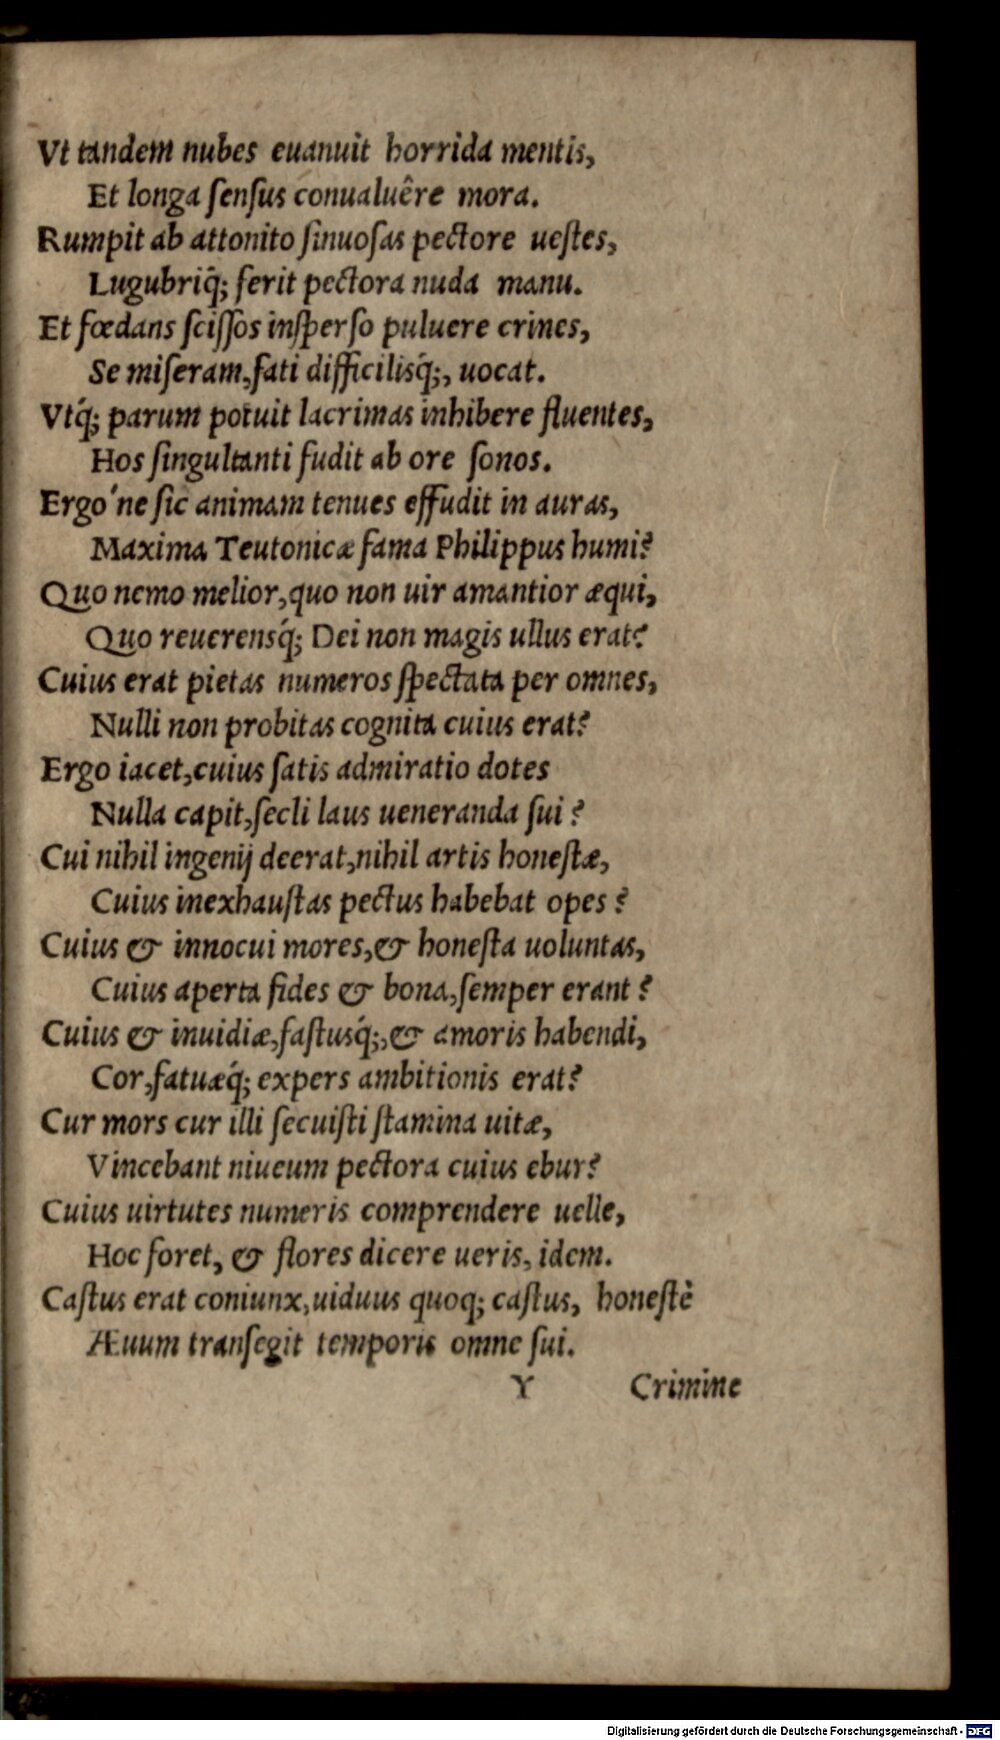 Vt tandem nubes euanuit horrida mentis,
Et longa ſenſus conualuêre mora.
Rumpit ab attonito ſinuoſas pectore ueſtes,
Lugubriq́; ferit pectora nuda manu.
Et fœdans ſciſſos inſperſo puluere crines,
Se miſeram, fati difficilisq́;, uocat.
Vtq́; parum potuit lacrimas inhibere fluentes,
Hos ſingultanti fudit ab ore ſonos.
Ergo'ne ſic animam tenues effudit in auras,
Maxima Teutonicæ fama Philippus humi?
Quo nemo melior, quo non uir amantior æqui,
Quo reuerensq́; Dei non magis ullus erat?
Cuius erat pietas numeros ſpectata per omnes,
Nulli non probitas cognita cuius erat?
Ergo iacet, cuius ſatis admiratio dotes
Nulla capit, ſecli laus ueneranda ſui?
Cui nihil ingenij deerat, nihil artis honeſtæ,
Cuius inexhauſtas pectus habebat opes?
Cuius & innocui mores, & honeſta uoluntas,
Cuius aperta fides & bona, ſemper erant?
Cuius & inuidiæ, faſtusq́;, & amoris habendi,
Cor, fatuæq́; expers ambitionis erat?
Cur mors cur illi ſecuiſti ſtamina uitæ,
Vincebant niueum pectora cuius ebur?
Cuius uirtutes numeris comprendere uelle,
Hoc foret, & flores dicere ueris, idem.
Caſtus erat coniunx, uiduus quoq; caſtus, honeſtè
Æuum tranſegit temporis omne ſui.
Y Crimine
Digitalisierung gefördert durch die Deutsche Forschungsgemeinschaft - DFG